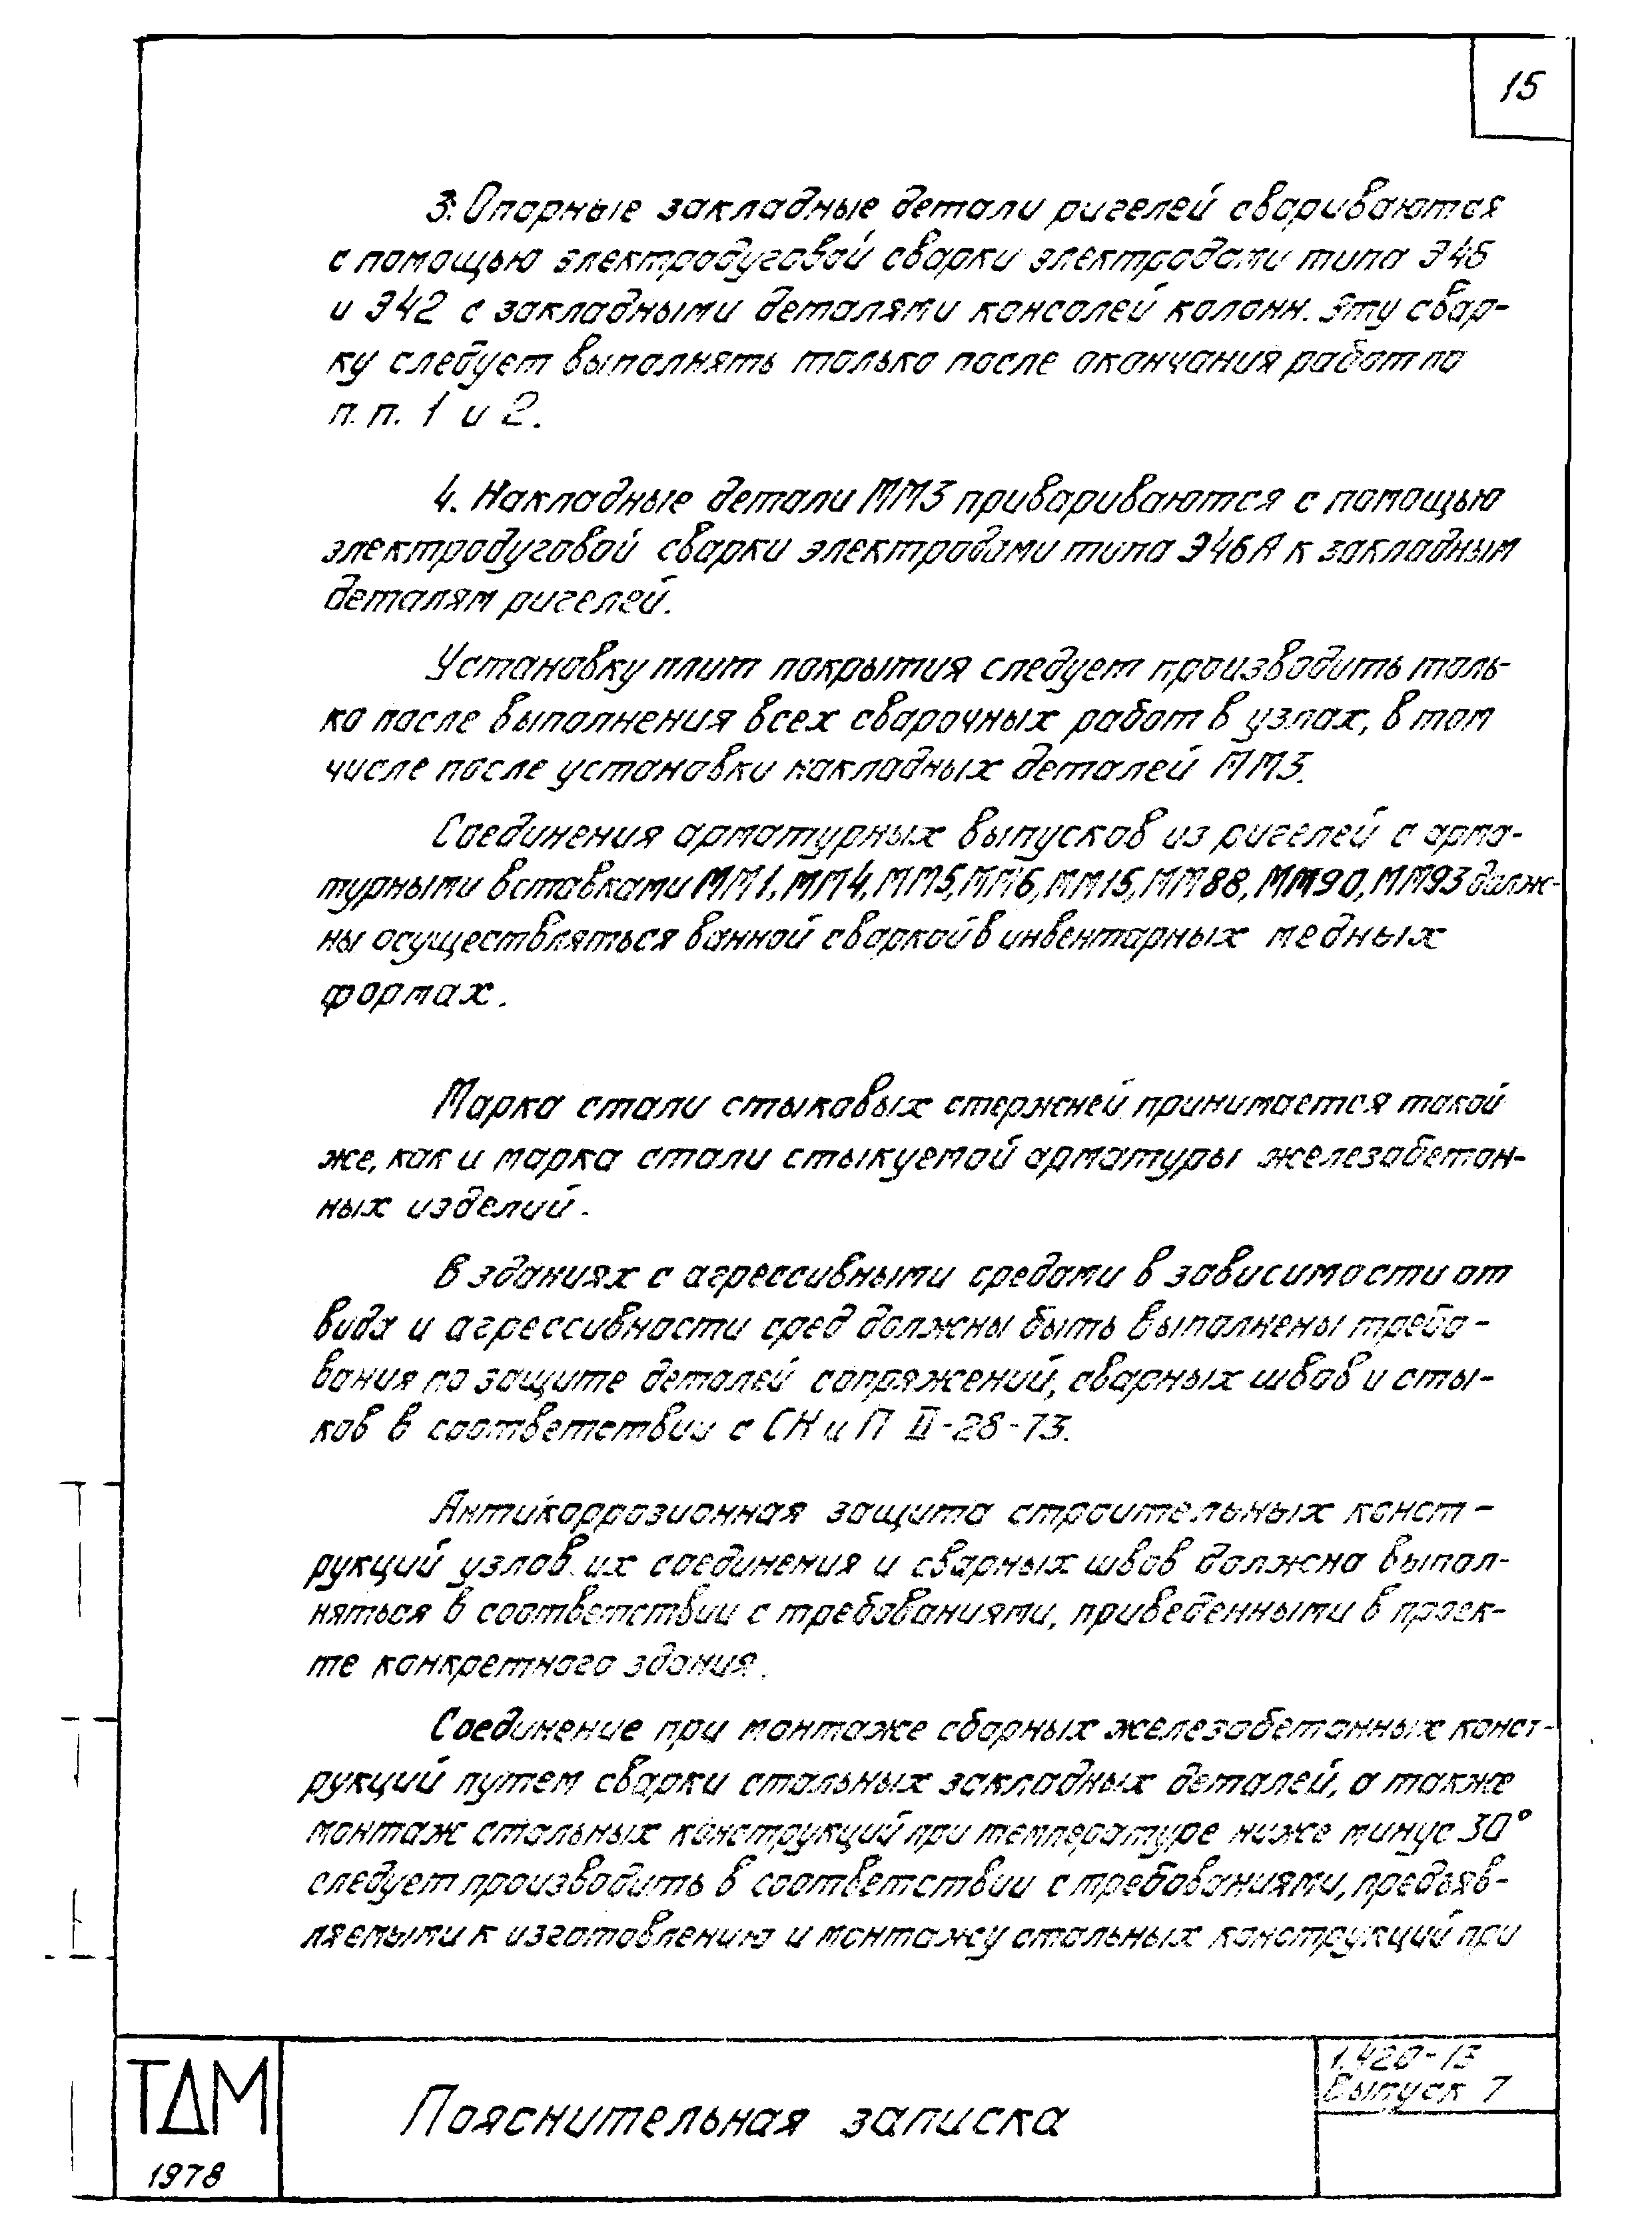 15
3. Опорные закладные детали ригелей свариваются
с помощью электродуговой сварки электродами типа Э46
и Э42 с закладными деталями консолей колонн. Эту свар-
ку следует выполнять только после окончания работ по
п.п. 1 и 2.
4. Накладные детали ММ3 привариваются с помощью
электродуговой сварки электродами типа Э46А к закладным
деталям ригелей.
Установку плит покрытия следует производить толь-
ко после выполнения всех сварочных работ в узлах, в том
числе после установки накладных деталей ММ3.
Соединения арматурных выпусков из ригелей с арма-
турными вставками ММ1, ММ4, ММ5, ММ6, ММ15, ММ88, ММ90, ММ93 долж-
ны осуществляться ванной сваркой в инвентарных медных
формах.
Марка стали стыковых стержней принимается такой
же, как и марка стали стыкуемой арматуры железобетон-
ных изделий.
В зданиях с агрессивными средами в зависимости от
вида и агрессивности сред должны быть выполнены требо-
вания по защите деталей сопряжений, сварных швов и сты-
ков в соответствии с СНиП II-28-73.
Антикоррозионная защита строительных конст-
рукций узлов их соединения и сварных швов должна выпол-
няться в соответствии с требованиями, приведенными в проек-
те конкретного здания.
Соединение при монтаже сборных железобетонных конст-
рукций путем сварки стальных закладных деталей, а также
монтаж стальных конструкций при температуре ниже минус 30°
следует производить в соответствии с требованиями, предъяв-
ляемыми к изготовлению и монтажу стальных конструкций при
ТДМ
1978
Пояснительная записка
1.420-13
Выпуск 7